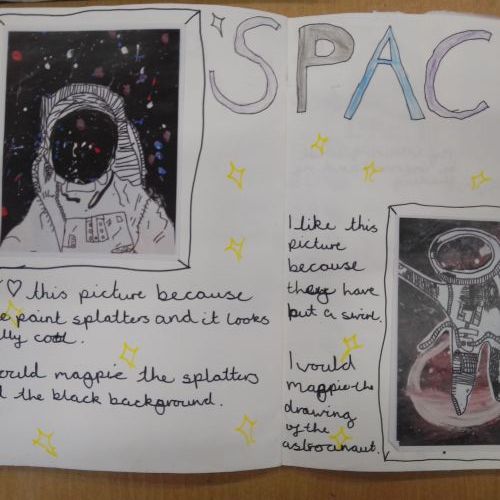 SPAC
I ♡ this picture because
paint splatters and it looks
cool.
magpie the splatters
the black background.
I like this
picture
because
they have
put a swirl.
I would
magpie the
drawing
of the
astronaut.